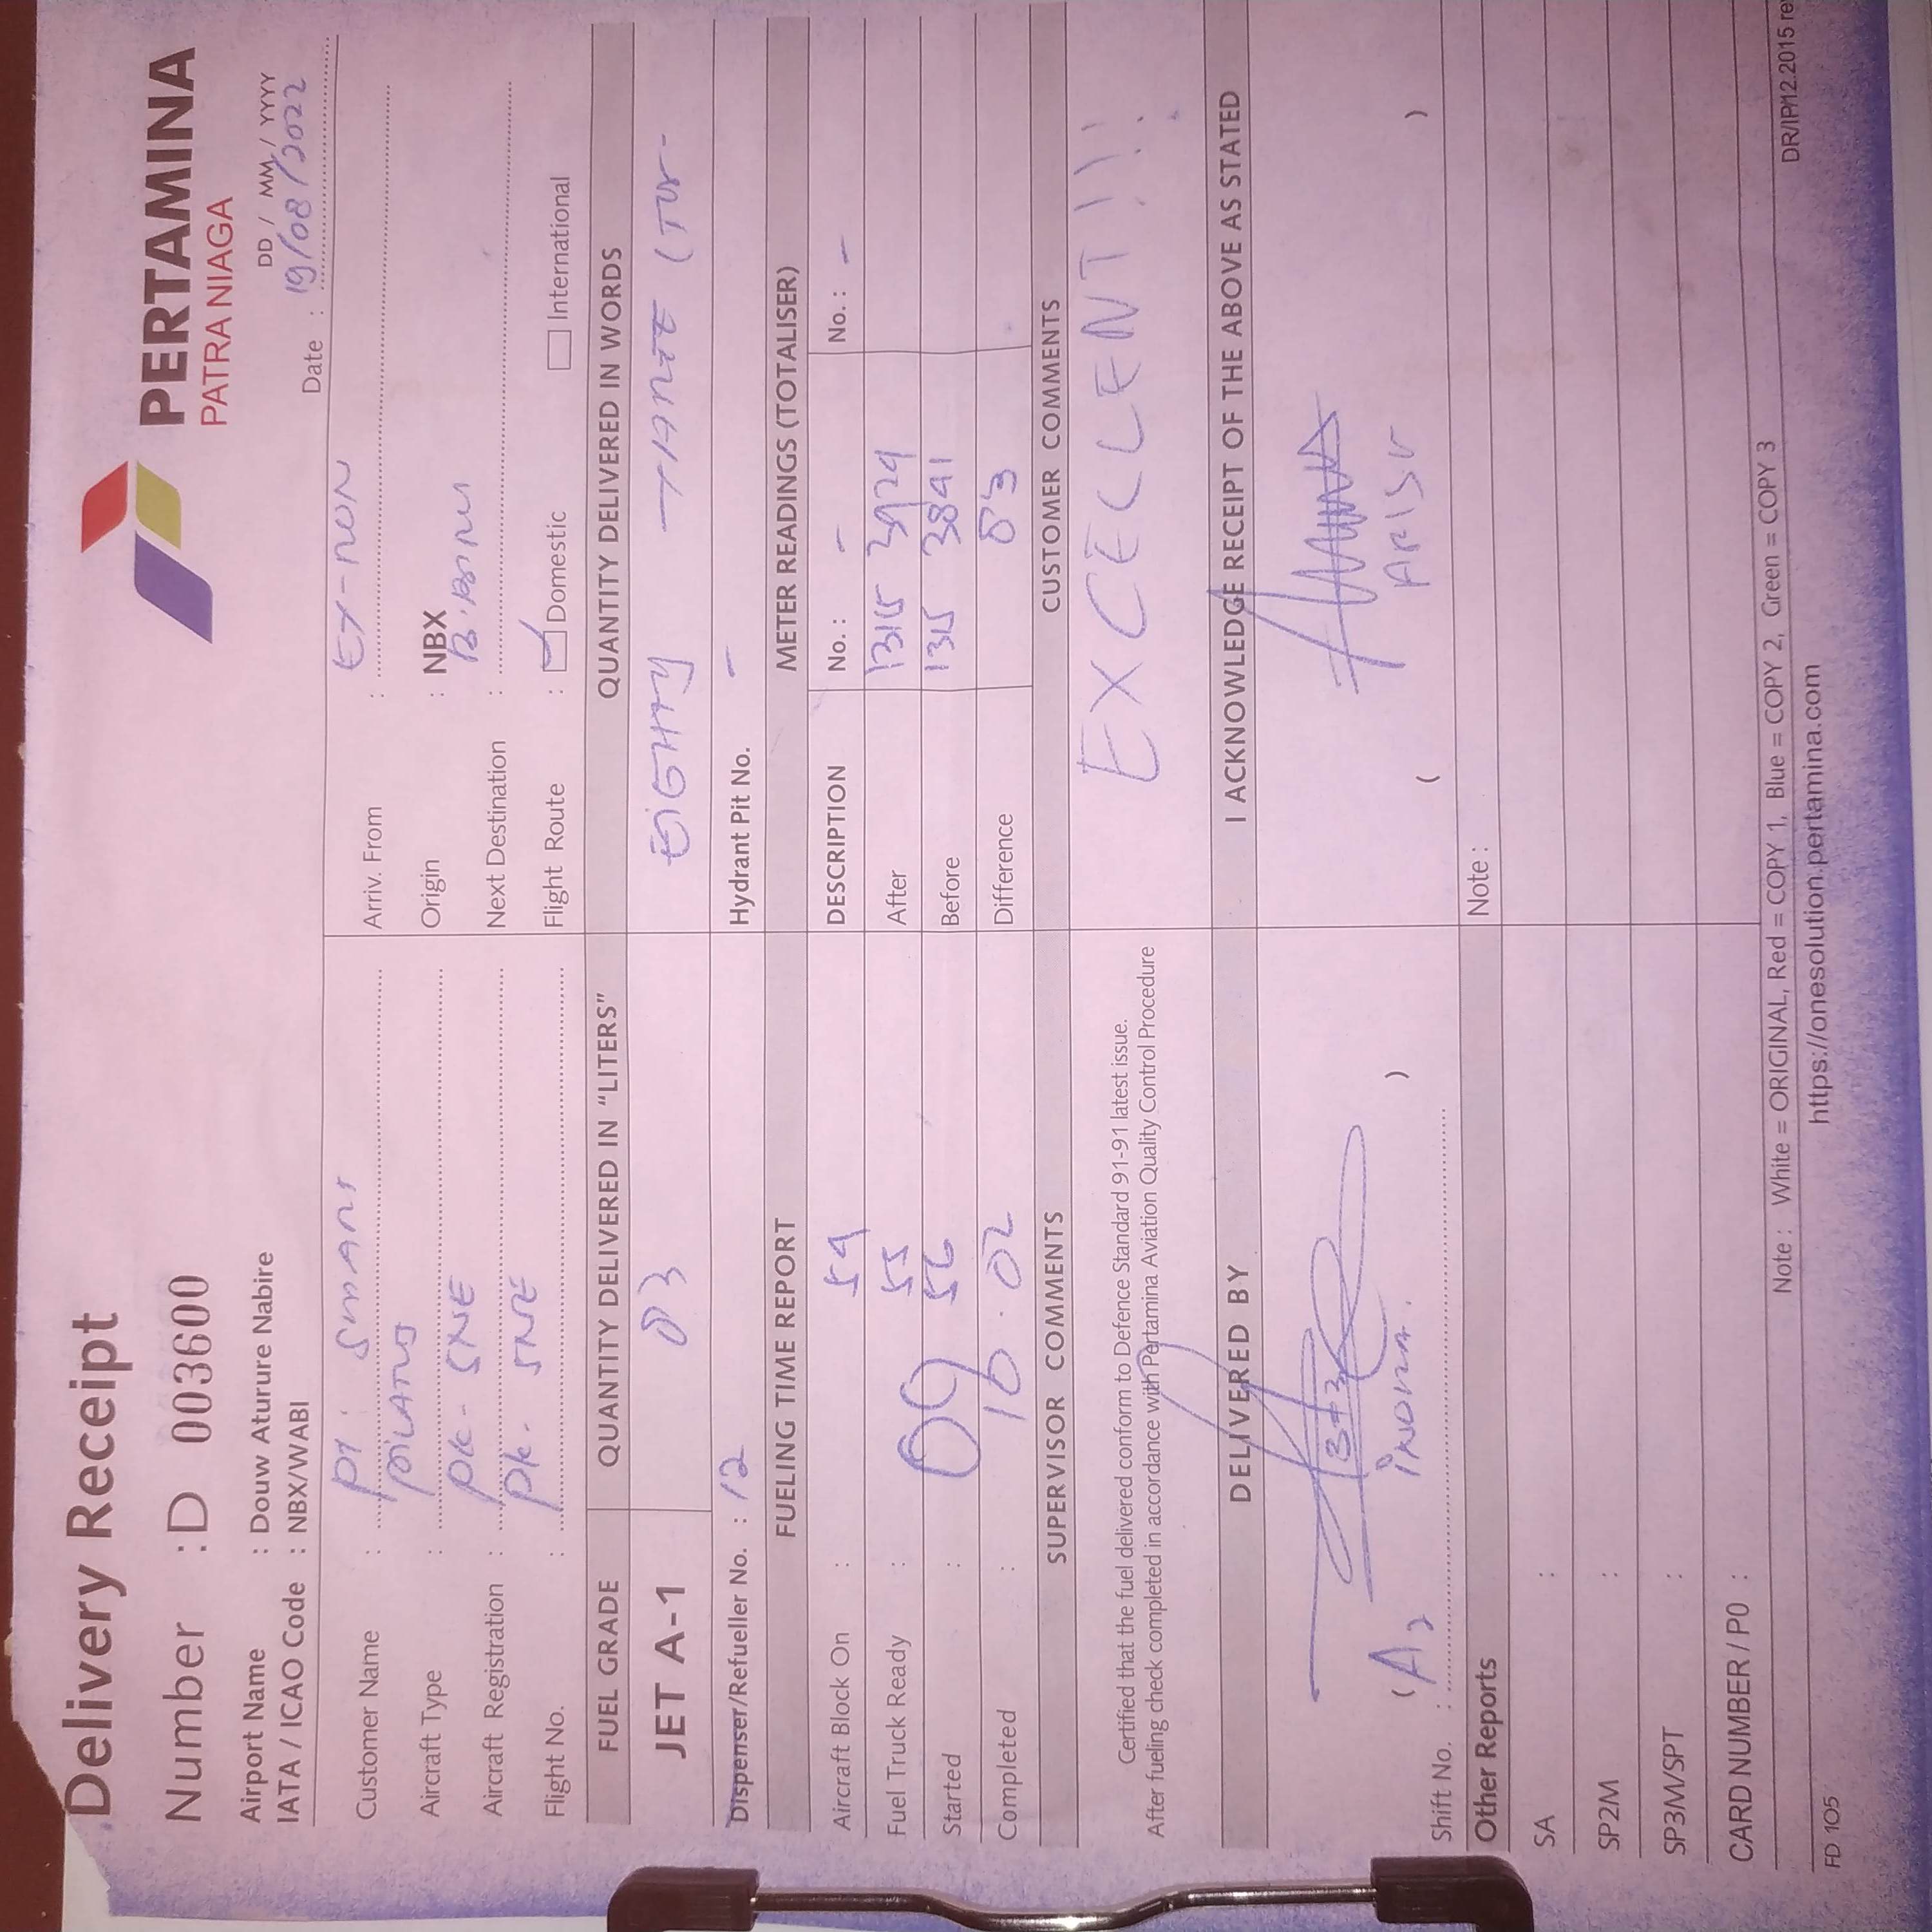 Delivery Receipt
PERTAMINA
PATRA NIAGA
Number : D 003600
Airport Name : Douw Aturure Nabire
IATA / ICAO Code : NBX/WABI
DD / MM / YYYY
Date : 19/08/2022
Customer Name : PT. SMART
Aircraft Type : PILATUS
Aircraft Registration : PK-SNE
Flight No. : PK-SNE
Arriv. From :
Origin : NBX
Next Destination :
Flight Route : Domestic International
FUEL GRADE
QUANTITY DELIVERED IN "LITERS"
QUANTITY DELIVERED IN WORDS
JET A-1
83
EIGHTY
Dispenser/Refueller No. : 12
Hydrant Pit No. -
FUELING TIME REPORT
METER READINGS (TOTALISER)
Aircraft Block On : 54
Fuel Truck Ready : 55
Started : 09 56
Completed : 10.02
DESCRIPTION No. : - No. : -
After 1315 3924
Before 1315 3841
Difference 83
SUPERVISOR COMMENTS
CUSTOMER COMMENTS
Certified that the fuel delivered conform to Defence Standard 91-91 latest issue.
After fueling check completed in accordance with Pertamina Aviation Quality Control Procedure
EXCELLENT!!!
DELIVERED BY
I ACKNOWLEDGE RECEIPT OF THE ABOVE AS STATED
( )
( )
Shift No. :
Other Reports
Note :
SA :
SP2M :
SP3M/SPT :
CARD NUMBER / PO :
Note : White = ORIGINAL, Red = COPY 1, Blue = COPY 2, Green = COPY 3
DR/IP/12.2015 rev
FD 105
https://onesolution.pertamina.com